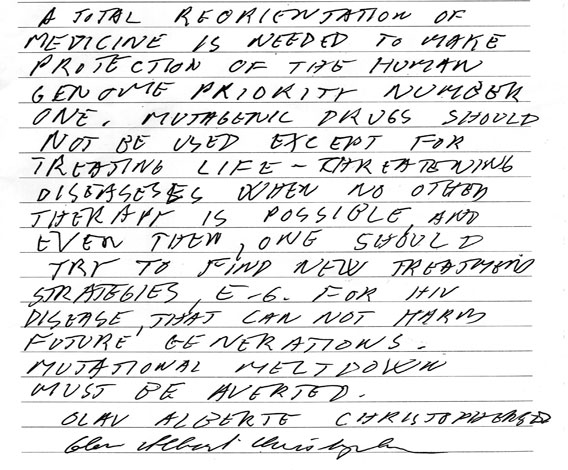 A TOTAL REORIENTATION OF
MEDICINE IS NEEDED TO MAKE
PROTECTION OF THE HUMAN
GENOME PRIORITY NUMBER
ONE. MUTAGENIC DRUGS SHOULD
NOT BE USED EXCEPT FOR
TREATING LIFE-THREATENING
DISEASESES WHEN NO OTHER
THERAPY IS POSSIBLE, AND
EVEN THEN, ONE SHOULD
TRY TO FIND NEW TREATMENT
STRATEGIES, E-G. FOR HIV
DISEASE, THAT CAN NOT HARM
FUTURE GENERATIONS.
MUTATIONAL MELTDOWN
MUST BE AVERTED.
OLAV ALBERT CHRISTOPHERSEN
Olav Albert Christophersen